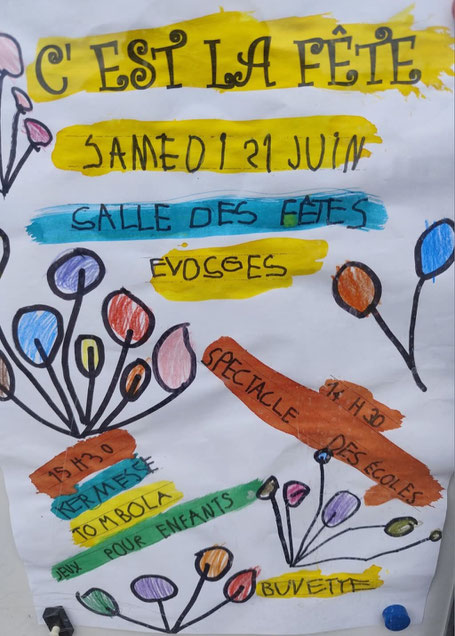 C'EST LA FÊTE
SAMEDI 21 JUIN
SALLE DES FÊTES
EVOSGES
14 H 30
SPECTACLE DES ECOLES
15 H 30
KERMESSE
TOMBOLA
JEUX POUR ENFANTS
BUVETTE